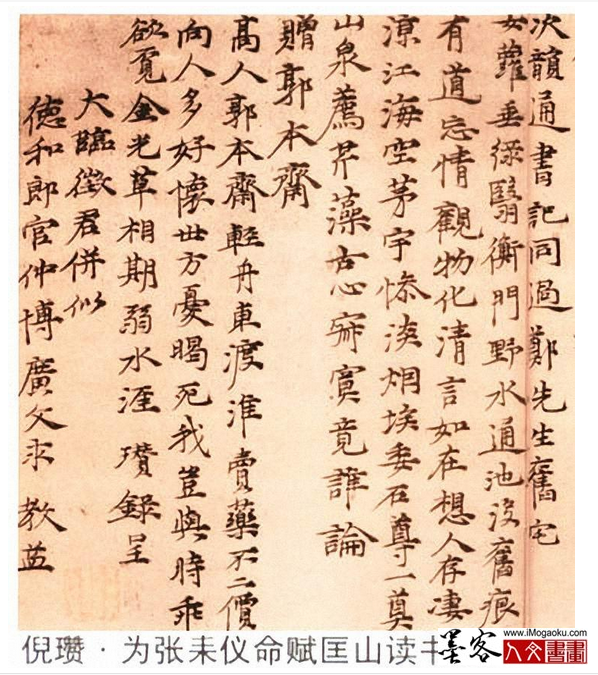 次韻通書記同過鄭先生舊宅
女蘿垂綠翳衡門野水通池沒舊痕
有道忘情觀物化清言如在想人存淒
涼江海空茅宇慘淡烟埃委石尊一奠
山泉薦芹藻古心寂寞竟誰論
贈郭本齋
高人郭本齋輕舟東渡淮賣藥不二價
向人多好懷世方憂暍死我豈與時乖
欲覓金光草相期弱水涯瓚錄呈
大臨徵君併似
德和郎官仲博廣文求教益
倪瓒·为张耒仪命赋匡山读书
墨客
www.iMogaoku.com
人文書畫